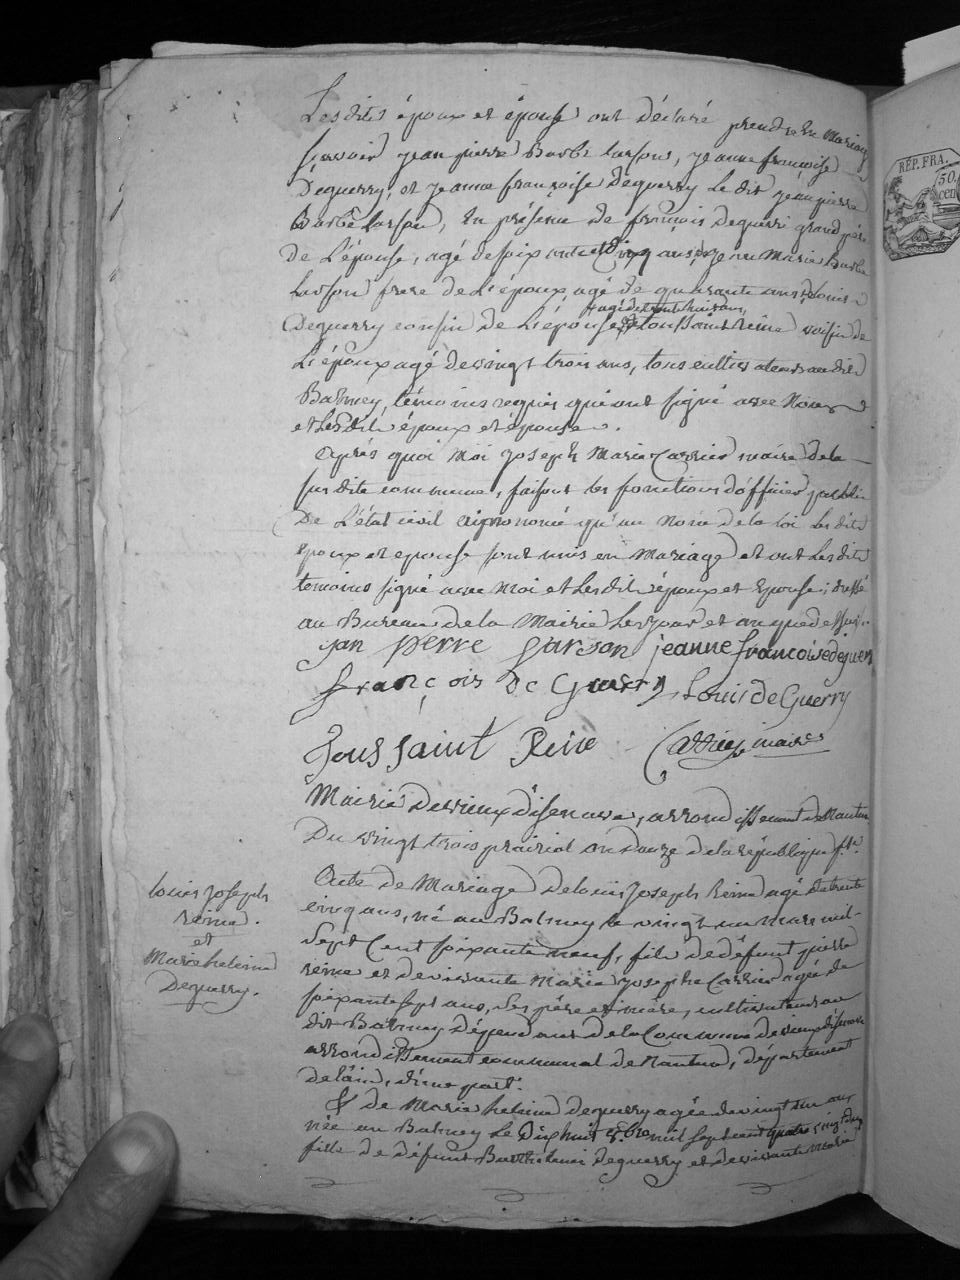 Les dits époux et épouse ont déclaré prendre en Mariage
sçavoir jean pierre Barbe larson, jeanne françoise
Deguerry, et jeanne françoise Deguerry Le dit jean pierre
Barbe larson, En présence de françois deguerri grand père
de L'épouse, agé de soixante et dix ans, de jean Marie Barbe
Larson frere de L'époux agé de quarante ans, Louis
agé de trente huit ans,
Deguerry cousin de L'épouse et toussaint reine voisin de
L'époux agé de vingt trois ans, tous cultivateurs au dit
Balmey, témoins requis qui ont signé avec Nous
et Les dits époux et épouse.
après quoi Moi joseph Marie Carrier maire de la
sus dite commune, faisant les fonctions d'officier public
De L'état civil ai prononcé qu'au Nom de la loi Les dits
époux et epouse sont unis en Mariage et ont Les dits
temoins signé avec Moi et Les dits époux et Epouse; dressé
au Bureau de la Mairie Les jour et an que dessus.
jan pierre larson jeanne francoise deguerri
françois De Guerry Louis de Guerry
Toussaint Reine Carrier maire
Mairie de vieux d'isenave, arrondissement de Nantua
Du vingt trois prairial an Douze de la république f.se
Acte de Mariage de louis joseph Reine agé de trente
cinq ans, né au Balmey le vingt un mars mil
Sept Cent soixante neuf, fils de défunt pierre
reine et de vivante Marie josephe Carrier agée de
soixante sept ans, Ses père et mère, cultivateurs au
dit Balmey dépendant de la Commune de vieux d'isenave
arrondissement communal de Nantua, département
de l'ain, d'une part.
Et de Marie helaine deguerry agée de vingt un ans
née au Balmey Le Dix huit mil sept cent quatre vingt deux
fille de défunt Barthelemi deguerry et de vivante Marie
louis joseph
reine.
et
Marie helaine
Deguerry.
RÉP. FRA.
50.
cen